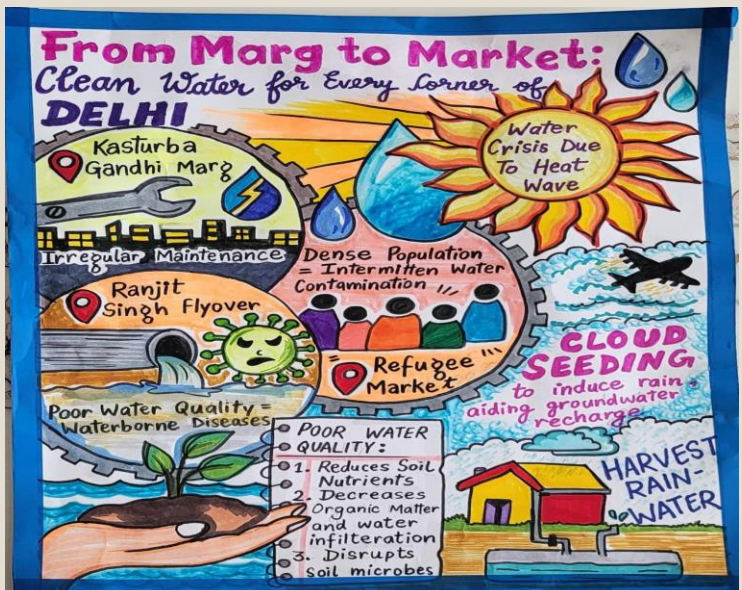 From Marg to Market:
Clean Water for Every Corner of
DELHI
Kasturba
Gandhi Marg
Irregular Maintenance
Water
Crisis Due
To Heat
Wave
Dense Population
= Intermitten Water
Contamination
Ranjit
Singh Flyover
Refugee
Market
Poor Water Quality =
Waterborne Diseases
CLOUD
SEEDING
to induce rain
aiding groundwater
recharge
POOR WATER
QUALITY:
1. Reduces Soil
Nutrients
2. Decreases
Organic Matter
and water
infilteration
3. Disrupts
Soil microbes
HARVEST
RAIN-
WATER